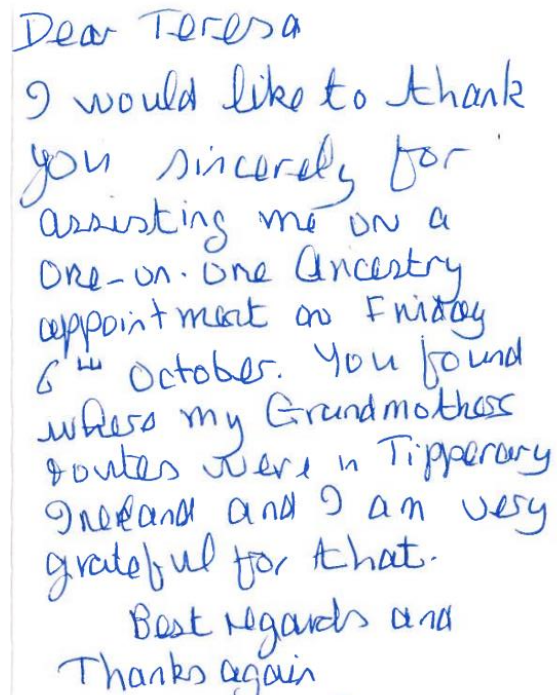 Dear Teresa
I would like to thank
you sincerely for
assisting me on a
one-on-one Ancestry
appointment on Friday
6th October. You found
where my Grandmothers
routes were in Tipperary
Ireland and I am very
grateful for that.
Best regards and
Thanks again